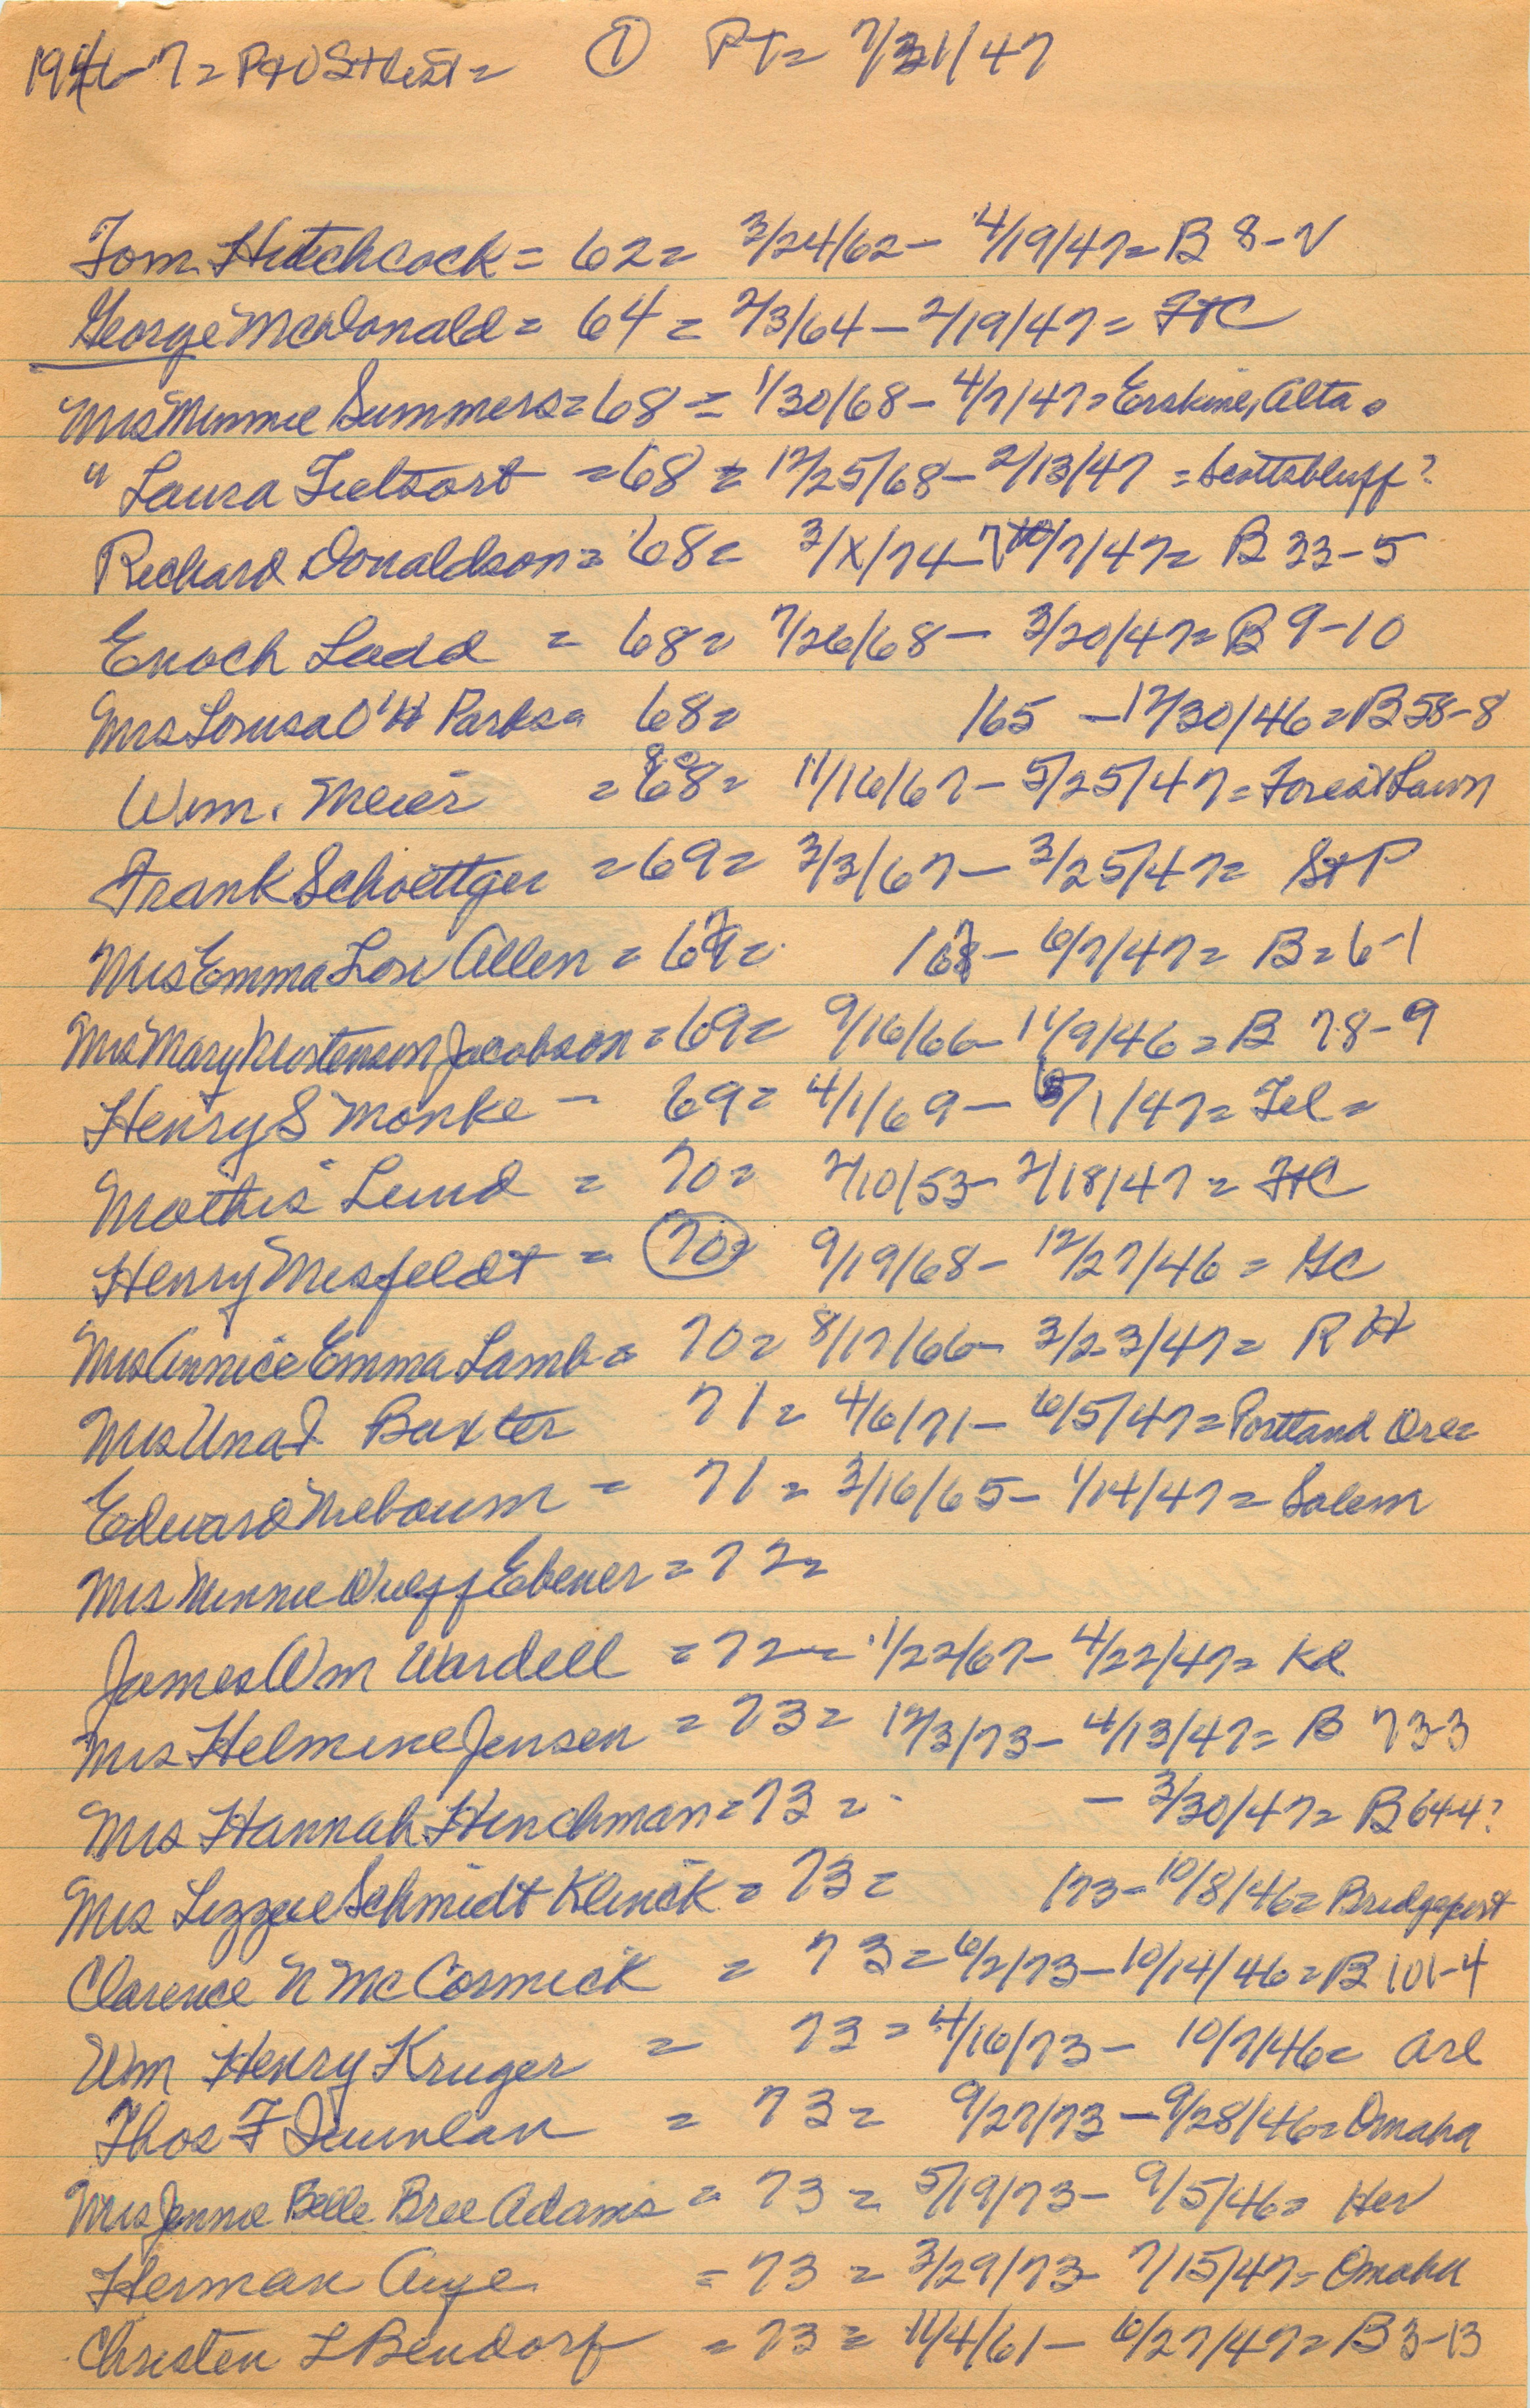 1946-7 = P+O St List = ① PT= 7/31/47
Tom Hutchcock = 62 = 3/24/62 - 4/19/47 = B 8-V
George McDonald = 64 = 2/3/64 - 2/19/47 = FtC
Mrs Minnie Summers = 68 = 1/30/68 - 4/7/47 = Erskine, Alta.
" Laura = 68 = 12/25/68 - 2/13/47 = Scottsbluff?
Richard Donaldson = 68 = 3/X/74 - 7/7/47 = B 33-5
Enoch Ladd = 68 = 7/26/68 - 3/20/47 = B 9-10
Mrs Lousa O'H Parks = 68 = /65 - 12/30/46 = B58-8
Wm. Meier = 68 = 11/16/67 - 5/25/47 = Forest Lawn
Frank Schoettger = 69 = 3/3/67 - 3/25/47 = St P
Mrs Emma Allen = 67 = /67 - 6/7/47 = B = 6-1
Mrs Mary Kristensen Jacobson = 69 = 9/16/66 - 11/9/46 = B 78-9
Henry S Monke - 69 = 4/1/69 - 6/1/47 = Tel =
Mathis Lund = 70 = 2/10/53 - 2/18/47 = FtC
Henry Misfeldt = 70 = 9/19/68 - 12/27/46 = GC
Mrs Annice Emma Lamb = 70 = 8/17/66 - 3/23/47 = R H
Mrs Una I Baxter 71 = 4/6/71 - 6/5/47 = Portland Ore =
Edward Niebaum = 71 = 3/16/65 - 1/14/47 = Salem
Mrs Minnie Wulff Ebener = 72 =
James Wm Wardell = 72 = 1/22/67 - 4/22/47 = Kd
Mrs Helmine Jensen = 73 = 12/3/73 - 4/13/47 = B 73-3
Mrs Hannah Hinchman = 73 = - 3/30/47 = B 64-4?
Mrs Lizzie Schmidt Klinck = 73 = /73 - 10/8/46 = Bridgeport
Clarence N McCormick = 73 = 6/2/73 - 10/14/46 = B 101-4
Wm Henry Kruger = 73 = 4/16/73 - 10/7/46 = Arl
Thos F Quinlan = 73 = 9/27/73 - 9/28/46 = Omaha
Mrs Jennie Belle Bree Adams = 73 = 5/19/73 - 9/5/46 = Her
Herman Auge = 73 = 3/29/73 - 7/15/47 = Omaha
Christen L Bendorf = 73 = 11/4/61 - 6/27/47 = B 3-13